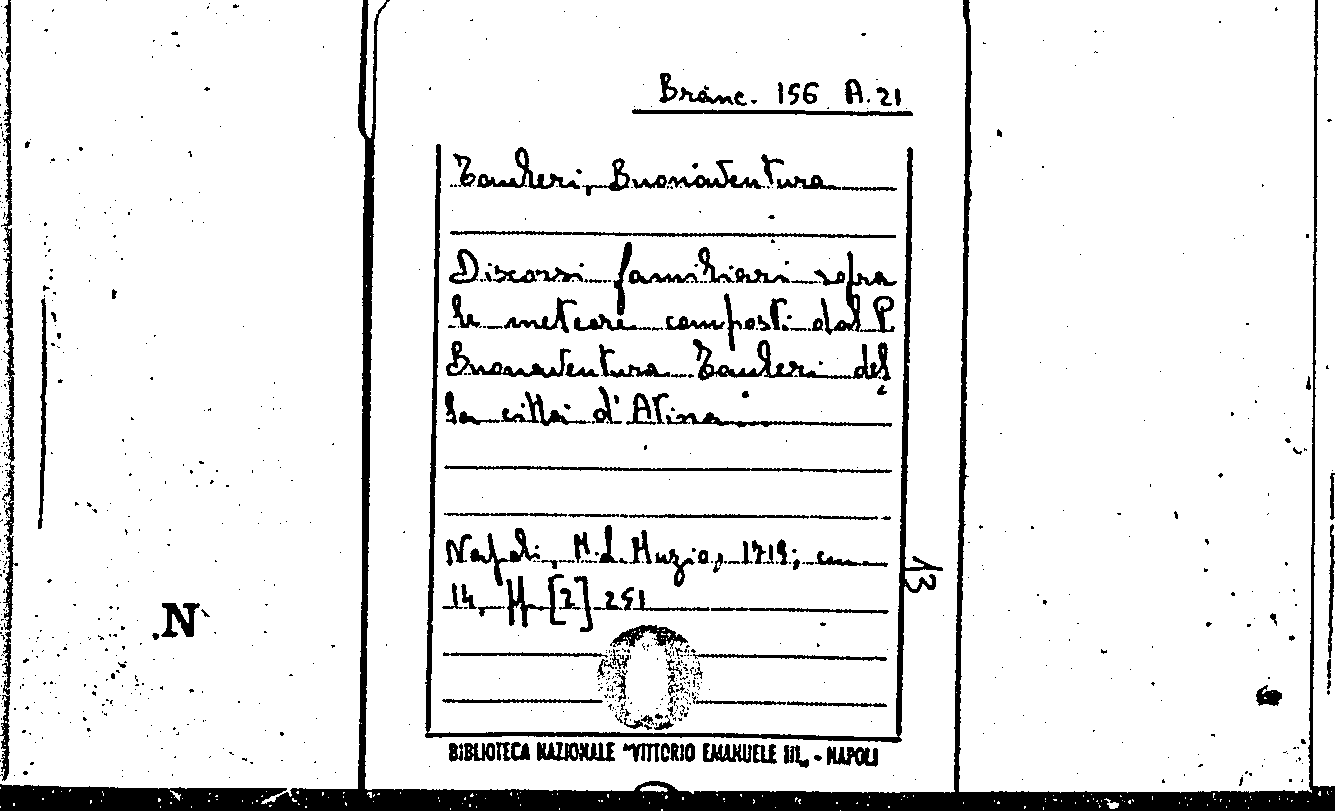 Branc. 156 A.21
Tauleri, Buonaventura
Discorsi familiari sopra
le meteore composti dal P
Buonaventura Tauleri del
la città d'Atina
Napoli, M.L. Muzio, 1719; cm
14, pp. [2] 251
13
.N
BIBLIOTECA NAZIONALE "VITTORIO EMANUELE III„ - NAPOLI